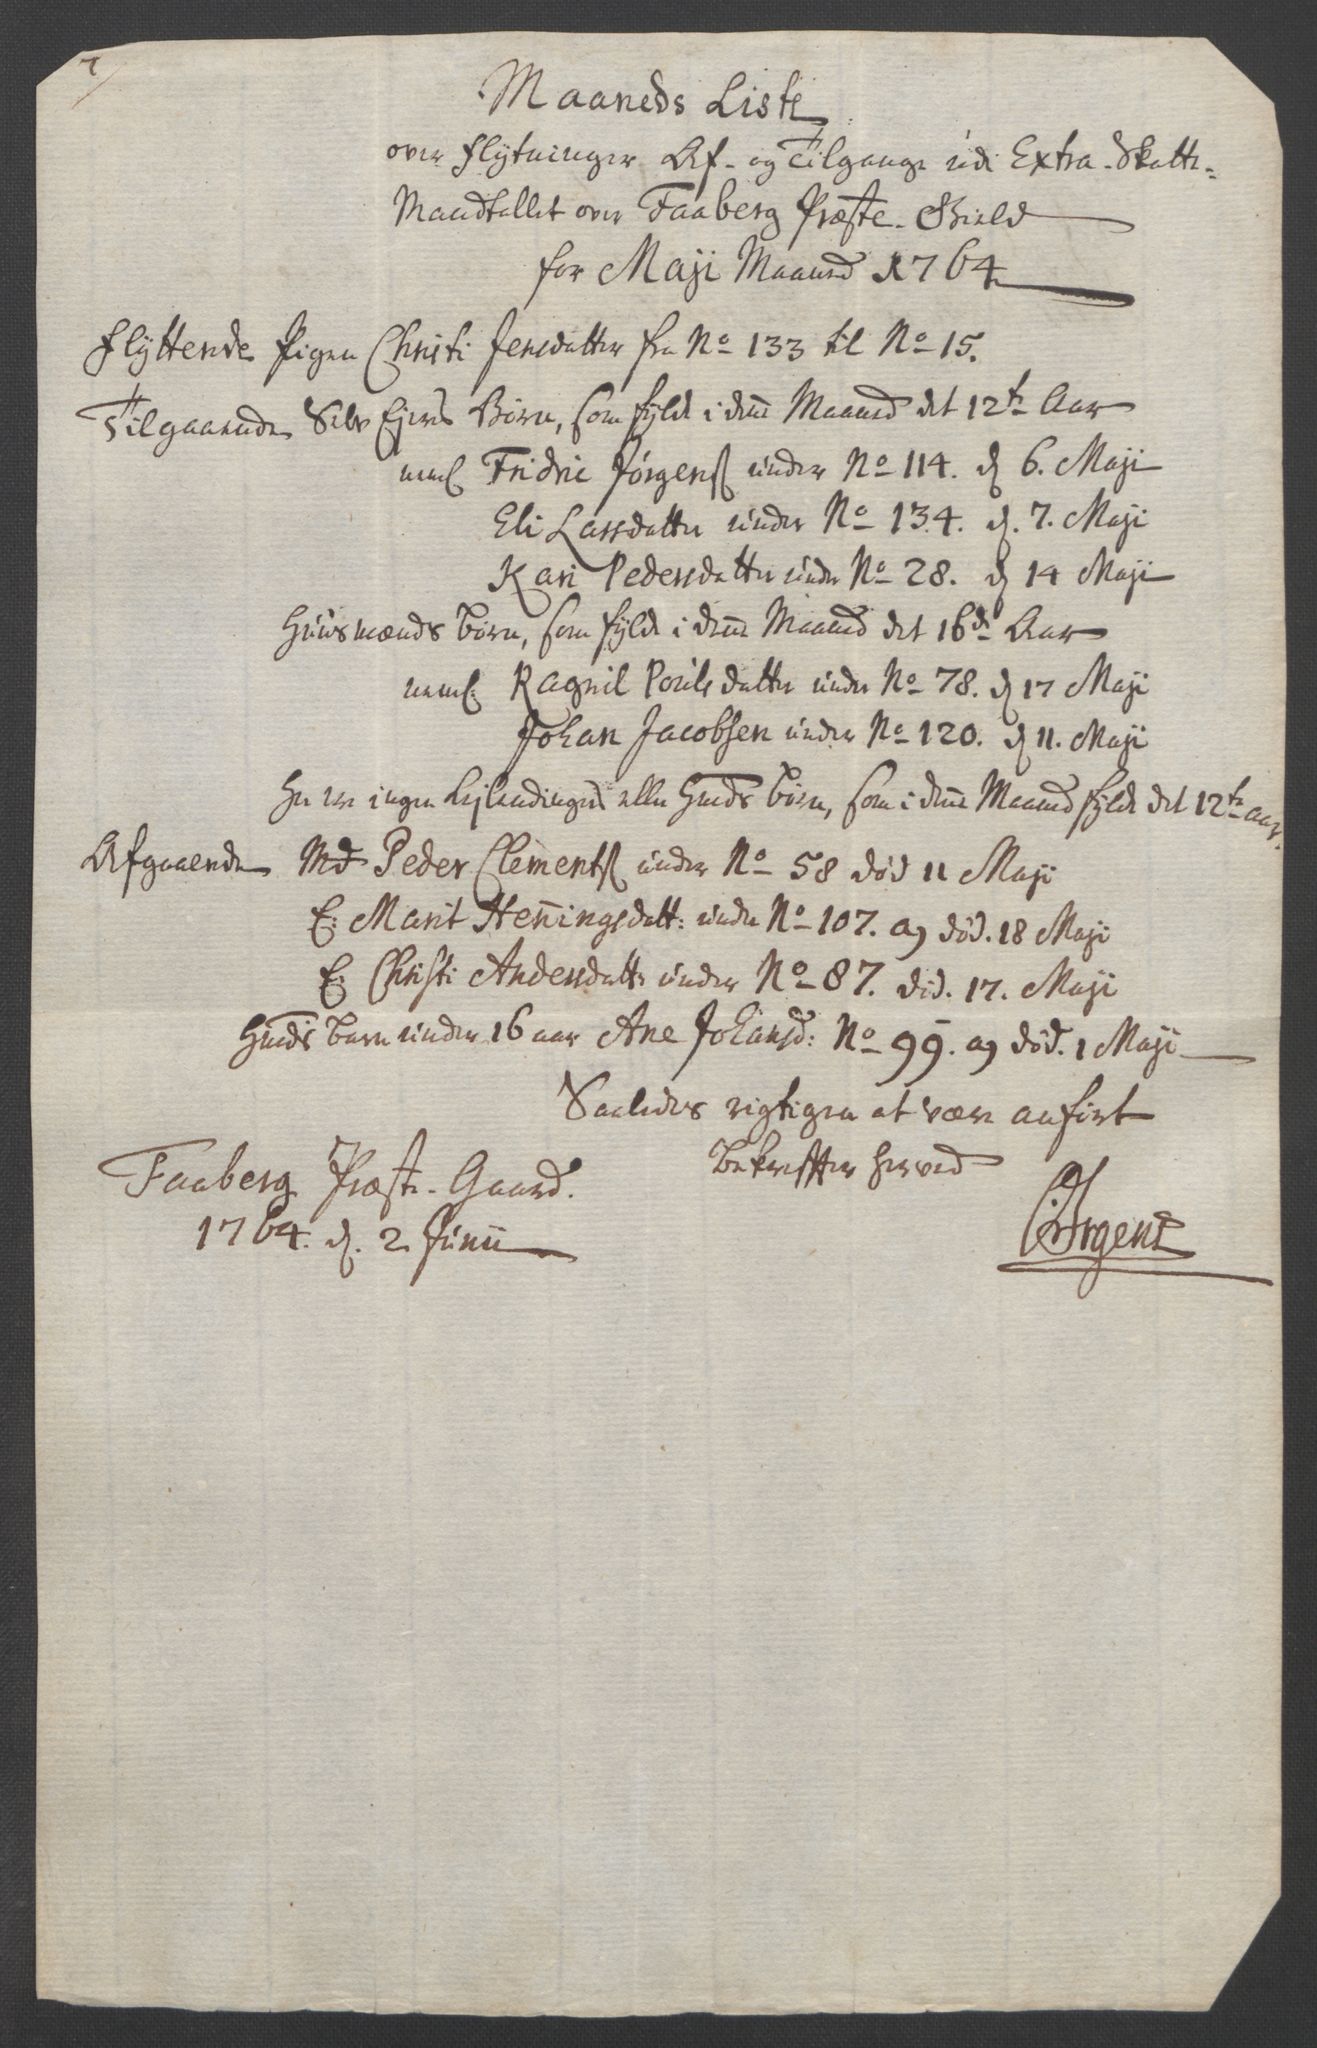 7
Maaneds Liste
over Flytninger Af- og Tilgange udi Extra-Skatte-
Mandtallet over Faaberg Præste-Gield
for Maji Maaned 1764
Flyttende Pigen Christi Jensdatter fra No 133 til No 15.
Tilgaaende Selv Ejeres Børn, som fylde i denne Maaned det 12te Aar
neml Fridric Jørgens under No 114. d 6. Maji
Eli Larsdatter under No 134. d. 7. Maji
Kari Pedersdatter under No 28. d 14 Maji
Huusmænds børn, som fylde i denne Maaned det 16de Aar
neml: Ragnil Poulsdatter under No 78. d 17 Maji
Johan Jacobsen under No 120. d 11. Maji
Her er ingen Lejlendinges eller Hmds børn, som i denne Maaned fylde det 12te aar.
Afgaaende Md Peder Clements under No 58 død 11 Maji
E: Marit Henningsdatt: under No 107. a) død. 18 Maji
E: Christi Andersdatter under No 87. død. 17. Maji
Hmds barn under 16 aar Ane Johansd: No 99. a) død. 1 Maji
Saaledes rigtigen at være anført
Bekræffter herved
Faaberg Præste-Gaard.
1764. d. 2 Junii